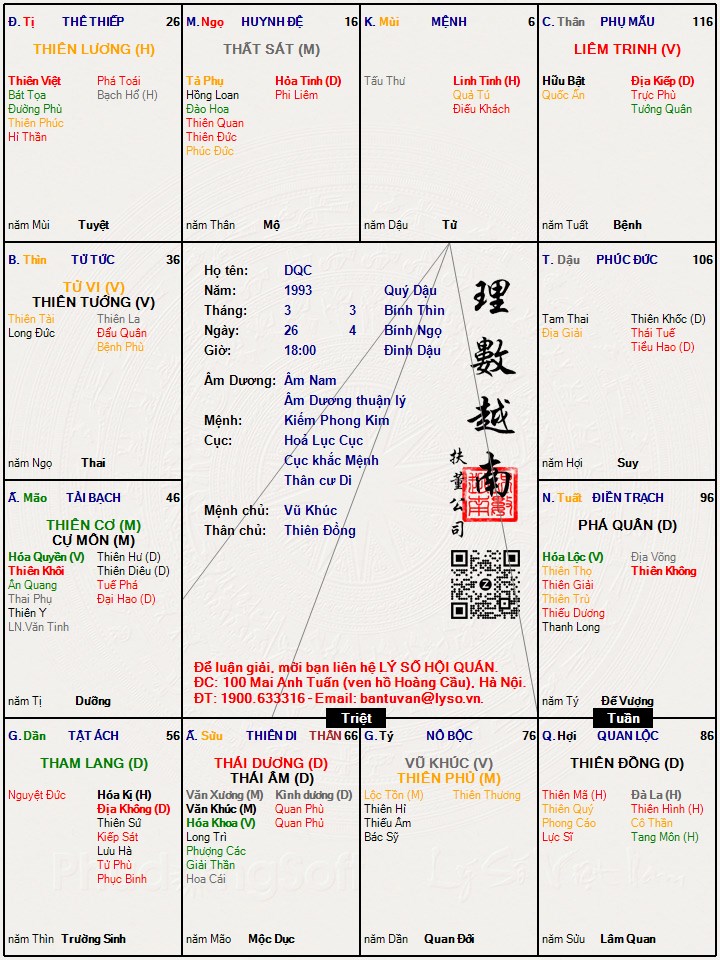 Đ. Tị THÊ THIẾP 26
THIÊN LƯƠNG (H)
Thiên Việt Phá Toái
Bát Tọa Bạch Hổ (H)
Đường Phù
Thiên Phúc
Hỉ Thần
năm Mùi Tuyệt
M. Ngọ HUYNH ĐỆ 16
THẤT SÁT (M)
Tả Phụ Hỏa Tinh (D)
Hồng Loan Phi Liêm
Đào Hoa
Thiên Quan
Thiên Đức
Phúc Đức
năm Thân Mộ
K. Mùi MỆNH 6
Tấu Thư Linh Tinh (H)
Quả Tú
Điếu Khách
năm Dậu Tử
C. Thân PHỤ MẪU 116
LIÊM TRINH (V)
Hữu Bật Địa Kiếp (D)
Quốc Ấn Trực Phù
Tướng Quân
năm Tuất Bệnh
B. Thìn TỬ TỨC 36
TỬ VI (V)
THIÊN TƯỚNG (V)
Thiên Tài Thiên La
Long Đức Đẩu Quân
Bệnh Phù
năm Ngọ Thai
Họ tên: DQC
Năm: 1993 Quý Dậu
Tháng: 3 3 Bính Thìn
Ngày: 26 4 Bính Ngọ
Giờ: 18:00 Đinh Dậu
Âm Dương: Âm Nam
Âm Dương thuận lý
Mệnh: Kiếm Phong Kim
Cục: Hoả Lục Cục
Cục khắc Mệnh
Thân cư Di
Mệnh chủ: Vũ Khúc
Thân chủ: Thiên Đồng
理數越南
扶董公司
Để luận giải, mời bạn liên hệ LÝ SỐ HỘI QUÁN.
ĐC: 100 Mai Anh Tuấn (ven hồ Hoàng Cầu), Hà Nội.
ĐT: 1900.633316 - Email: bantuvan@lyso.vn.
T. Dậu PHÚC ĐỨC 106
Tam Thai Thiên Khốc (D)
Địa Giải Thái Tuế
Tiểu Hao (D)
năm Hợi Suy
Ấ. Mão TÀI BẠCH 46
THIÊN CƠ (M)
CỰ MÔN (M)
Hóa Quyền (V) Thiên Hư (D)
Thiên Khôi Thiên Diêu (D)
Ân Quang Tuế Phá
Thai Phụ Đại Hao (D)
Thiên Y
LN.Văn Tinh
năm Tị Dưỡng
N. Tuất ĐIỀN TRẠCH 96
PHÁ QUÂN (D)
Hóa Lộc (V) Địa Võng
Thiên Thọ Thiên Không
Thiên Giải
Thiên Trù
Thiếu Dương
Thanh Long
năm Tý Đế Vượng
Triệt
Tuần
G. Dần TẬT ÁCH 56
THAM LANG (D)
Nguyệt Đức Hóa Kị (H)
Địa Không (D)
Thiên Sứ
Kiếp Sát
Lưu Hà
Tử Phù
Phục Binh
năm Thìn Trường Sinh
Ấ. Sửu THIÊN DI THÂN 66
THÁI DƯƠNG (D)
THÁI ÂM (D)
Văn Xương (M) Kình dương (D)
Văn Khúc (M) Quan Phù
Hóa Khoa (V) Quan Phủ
Long Trì
Phượng Các
Giải Thần
Hoa Cái
năm Mão Mộc Dục
G. Tý NÔ BỘC 76
VŨ KHÚC (V)
THIÊN PHỦ (M)
Lộc Tồn (M) Thiên Thương
Thiên Hỉ
Thiếu Âm
Bác Sỹ
năm Dần Quan Đới
Q. Hợi QUAN LỘC 86
THIÊN ĐỒNG (D)
Thiên Mã (H) Đà La (H)
Thiên Quý Thiên Hình (H)
Phong Cáo Cô Thần
Lực Sĩ Tang Môn (H)
năm Sửu Lâm Quan